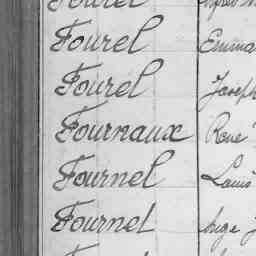 Fourel
Fourel Emma
Fourel Joseph
Fournaux René
Fournel Louis
Fournel Ange J